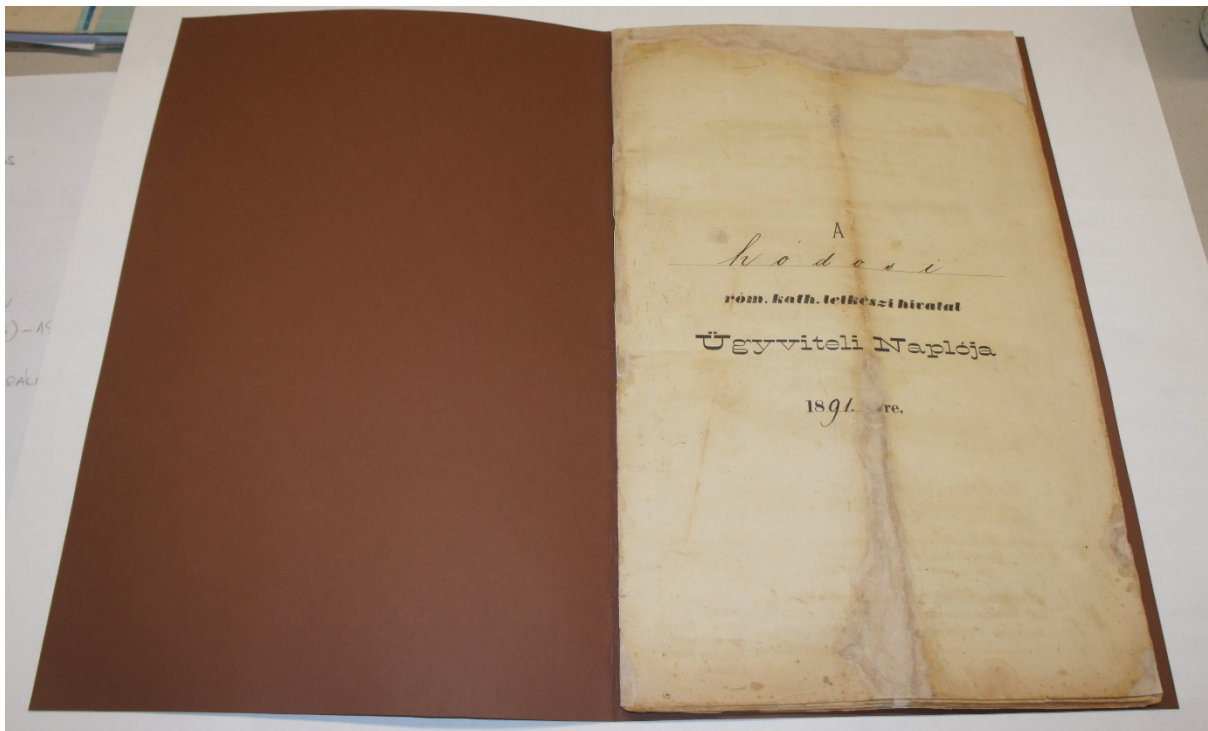 A
hódosi
róm. kath. lelkészi hivatal
Ügyviteli Naplója
1891. re.